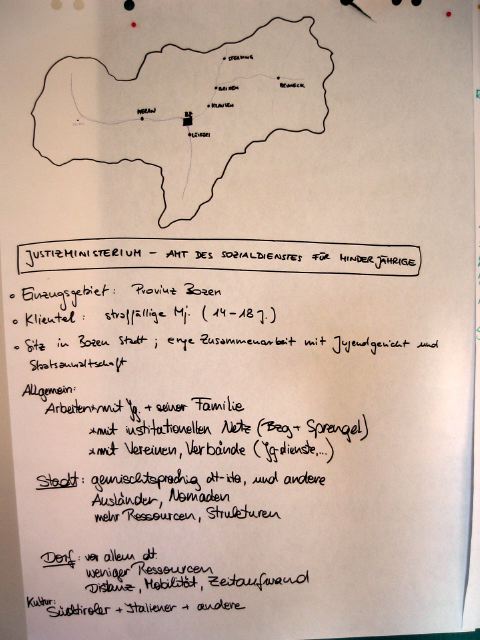 STERZING
BRIXEN
BRUNECK
KLAUSEN
MERAN
BZ
LEIFERS
JUSTIZMINISTERIUM – AMT DES SOZIALDIENSTES FÜR MINDERJÄHRIGE
• Einzugsgebiet: Provinz Bozen
• Klientel: straffällige Mj. (14-18 J.)
• Sitz in Bozen Stadt; enge Zusammenarbeit mit Jugendgericht und
Staatsanwaltschaft
Allgemein:
Arbeiten * mit Jg. + seiner Familie
* mit institutionellen Netz (Bzg + Sprengel)
* mit Vereinen, Verbände (Jg-dienste,...)
Stadt: gemischtsprachig dt-ita, und andere
Ausländer, Nomaden
mehr Ressourcen, Strukturen
Dorf: vor allem dt.
weniger Ressourcen
Distanz, Mobilität, Zeitaufwand
Kultur:
Südtiroler + Italiener + andere